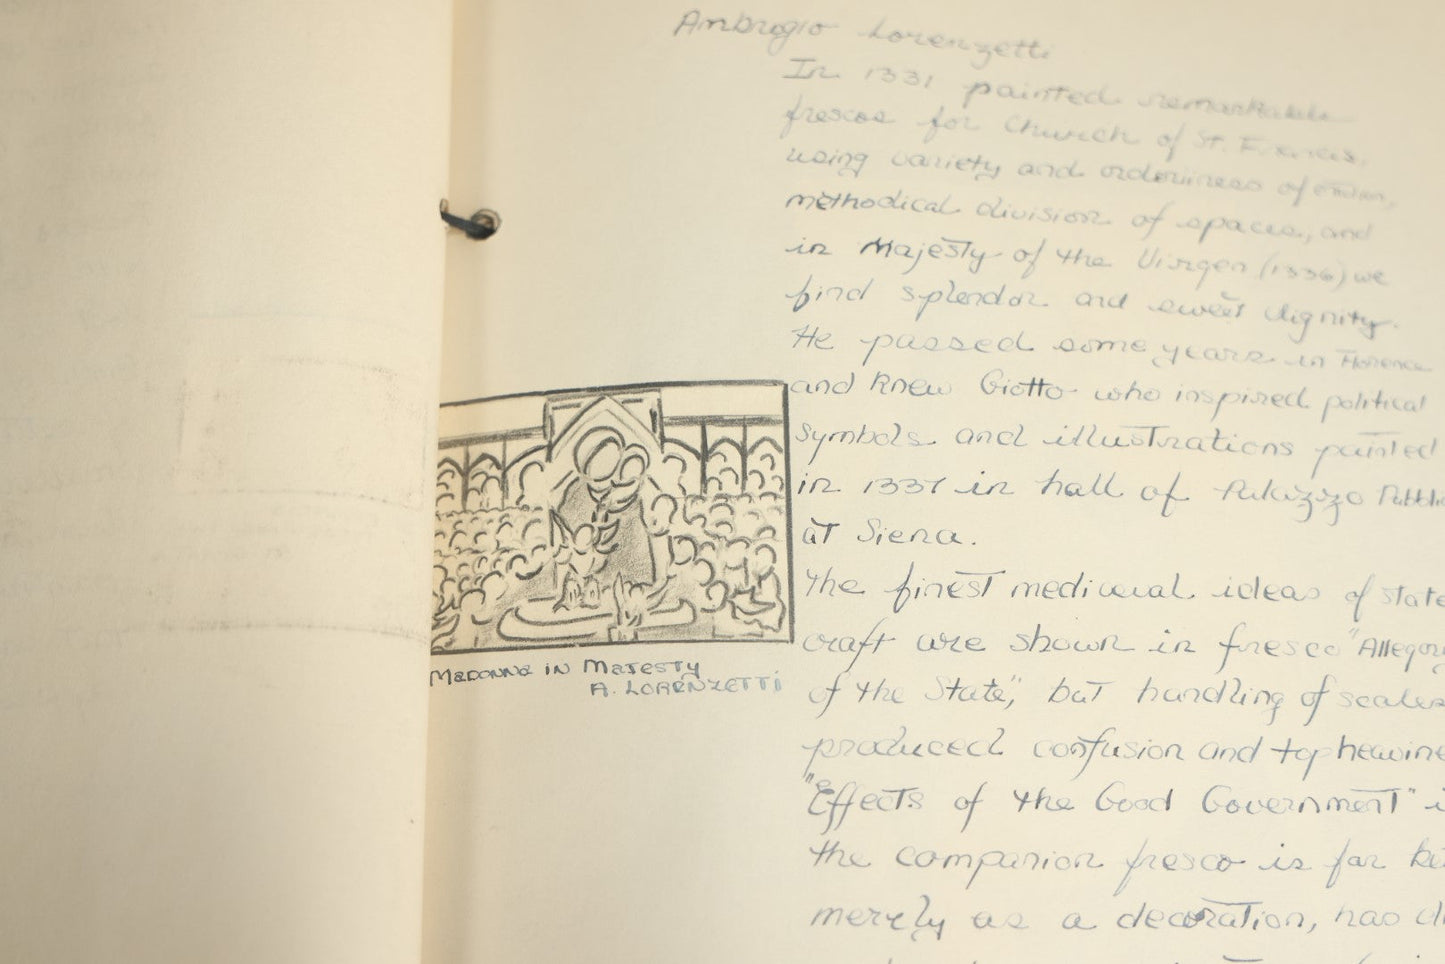 Ambrogio Lorenzetti
In 1331 painted remarkable
frescoe for Church of St. Francis,
using variety and orderliness of
methodical division of spaces, and
in Majesty of the Virgen (1336) we
find splendor and sweet dignity.
He passed some years in Florence
and knew Giotto who inspired political
symbols and illustrations painted
in 1337 in hall of Palazzo
at Siena.
The finest medieval ideas of state
craft are shown in fresco "Allegory
of the State", but handling of scales
produced confusion and top
"Effects of the Good Government"
the companion fresco is far
merely as a decoration, has
Madonna in Majesty
A. Lorenzetti